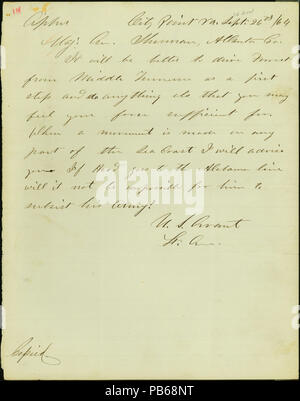 Cipher City Point Va. Sept. 26th /64
Maj. Gn. Sherman, Atlanta Ga.
It will be better to drive Forrest
from Middle Tennessee as a first
step and do anything else that you may
feel your force sufficient for.
When a movement is made on any
part of the Sea Coast I will advise
you. If Hood goes to the Alabama line
will it not be impossible for him to
subsist his army?
U. S. Grant
Lt. Gn.
Copied
alamy
PB68NT